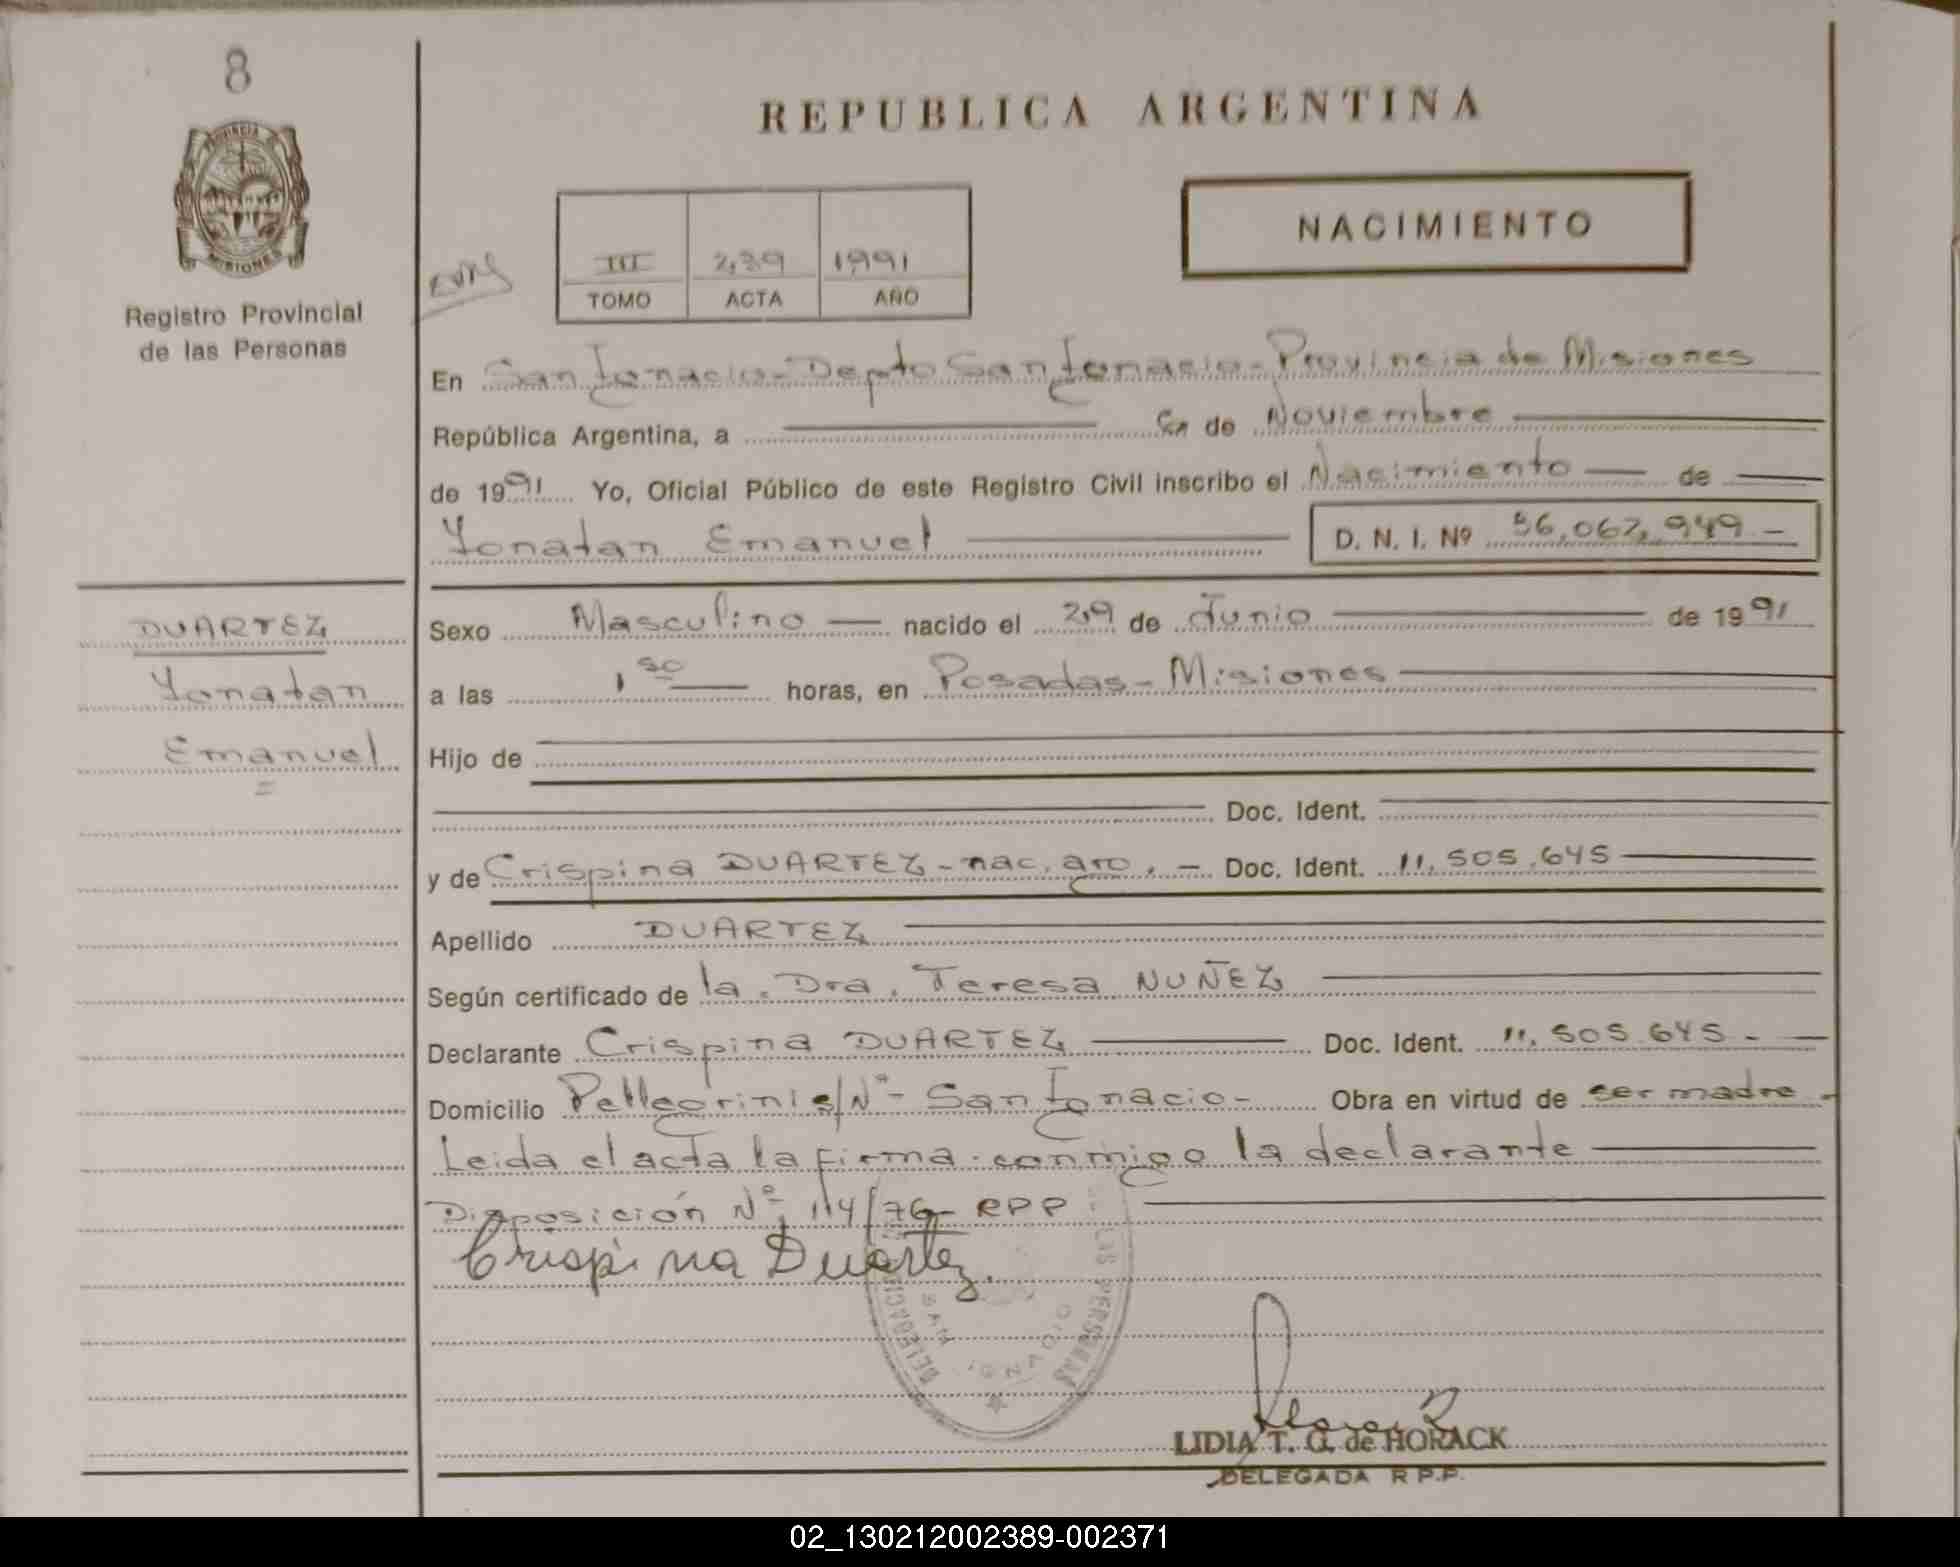 8
PROVINCIA DE
MISIONES
Registro Provincial
de las Personas
REPUBLICA ARGENTINA
NACIMIENTO
III 239 1991
TOMO ACTA AÑO
En San Ignacio - Depto San Ignacio - Provincia de Misiones
República Argentina, a de Noviembre
de 1991 Yo, Oficial Público de este Registro Civil inscribo el Nacimiento de
Yonatan Emanuel D. N. I. Nº 36,062,949 -
DUARTEZ
Yonatan
Emanuel
=
Sexo Masculino nacido el 29 de Junio de 1991
a las 1 30 horas, en Posadas - Misiones
Hijo de
Doc. Ident.
y de Crispina DUARTEZ - nac. arg. - Doc. Ident. 11.505.645
Apellido DUARTEZ
Según certificado de la . Dra . Teresa NUÑEZ
Declarante Crispina DUARTEZ Doc. Ident. 11.505.645 -
Domicilio Pellegrini s/Nº - San Ignacio - Obra en virtud de ser madre -
Leida el acta la firma conmigo la declarante
Disposición Nº 114/76 - RPP
Crispina Duartez
DELEGACION LAS PERSONAS
SAN IGNACIO
LIDIA T. G. de HORACK
DELEGADA R P.P.
02_130212002389-002371